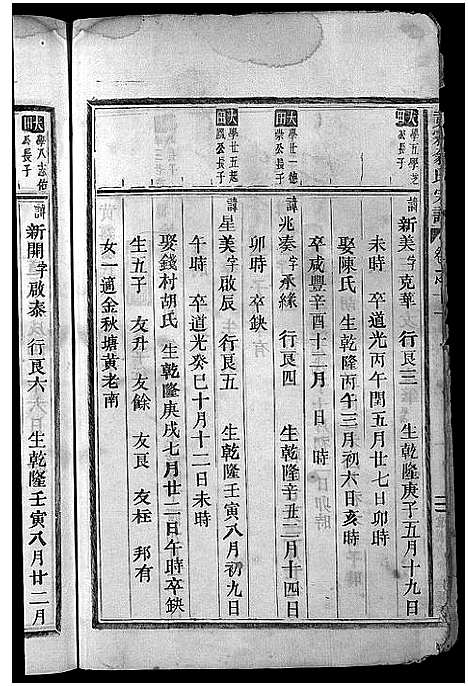 大田 學五學芝公長子
諱新美字克華 行艮三 生乾隆庚子五月十九日
未時 卒道光丙午閏五月廿七日卯時
娶陳氏 生乾隆丙午三月初六日亥時
卒咸豐辛酉十二月 日 時
大田 學廿一德榮公長子
諱兆秦字承緣 行艮四 生乾隆辛丑二月十四日
卯時 卒缺
大田 學廿五起公長子
諱星美字啟辰 行艮五 生乾隆壬寅八月初九日
午時 卒道光癸巳十月十二日未時
娶錢村胡氏 生乾隆庚戌七月廿二日午時卒缺
生五子 友升 友餘 友艮 友枉 邦有
女一適金秋塘黃老南
大田 學八志佑公長子
諱新開字啟泰 行艮六 生乾隆壬寅八月廿二月